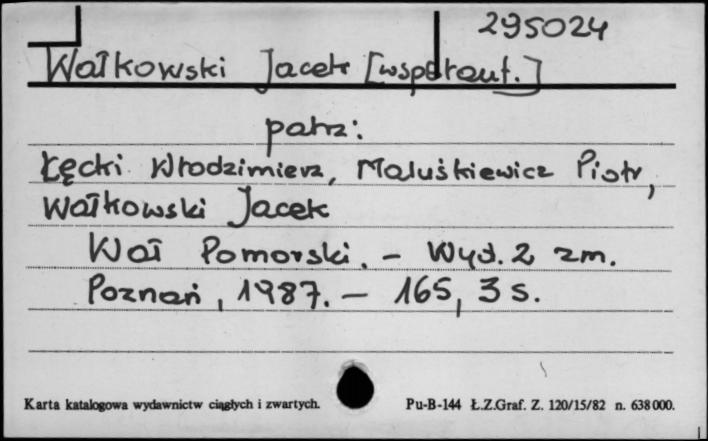 295024
Wałkowski Jacek [współaut.]
patrz:
Łęcki Włodzimierz, Maluśkiewicz Piotr,
Wałkowski Jacek
Wał Pomorski. – Wyd. 2 zm.
Poznań, 1987. – 165, 3 s.
Karta katalogowa wydawnictw ciągłych i zwartych. Pu-B-144 Ł.Z.Graf. Z. 120/15/82 n. 638000.